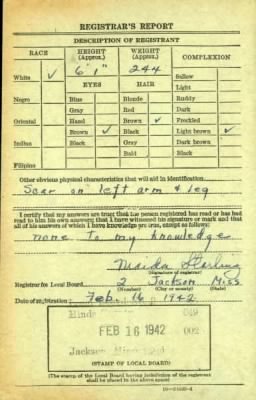 REGISTRAR'S REPORT
DESCRIPTION OF REGISTRANT
RACE HEIGHT (Approx.) WEIGHT (Approx.) COMPLEXION
6' 1" 244
White ✓ EYES HAIR Sallow
Light
Negro Blue Blonde Ruddy
Gray Red Dark
Oriental Hazel Brown ✓ Freckled
Brown ✓ Black Light brown ✓
Indian Black Gray Dark brown
Bald Black
Filipino
Other obvious physical characteristics that will aid in identification
Scar on left arm & leg
I certify that my answers are true; that the person registered has read or has had
read to him his own answers; that I have witnessed his signature or mark and that
all of his answers of which I have knowledge are true, except as follows:
none to my knowledge
Maida Sterling
(Signature of registrar)
Registrar for Local Board 2 Jackson Miss
(Number) (City or county) (State)
Date of registration Feb. 16, 1942
Hinds 049
FEB 16 1942 002
Jackson
(STAMP OF LOCAL BOARD)
(The stamp of the Local Board having jurisdiction of the registrant
shall be placed in the above space)